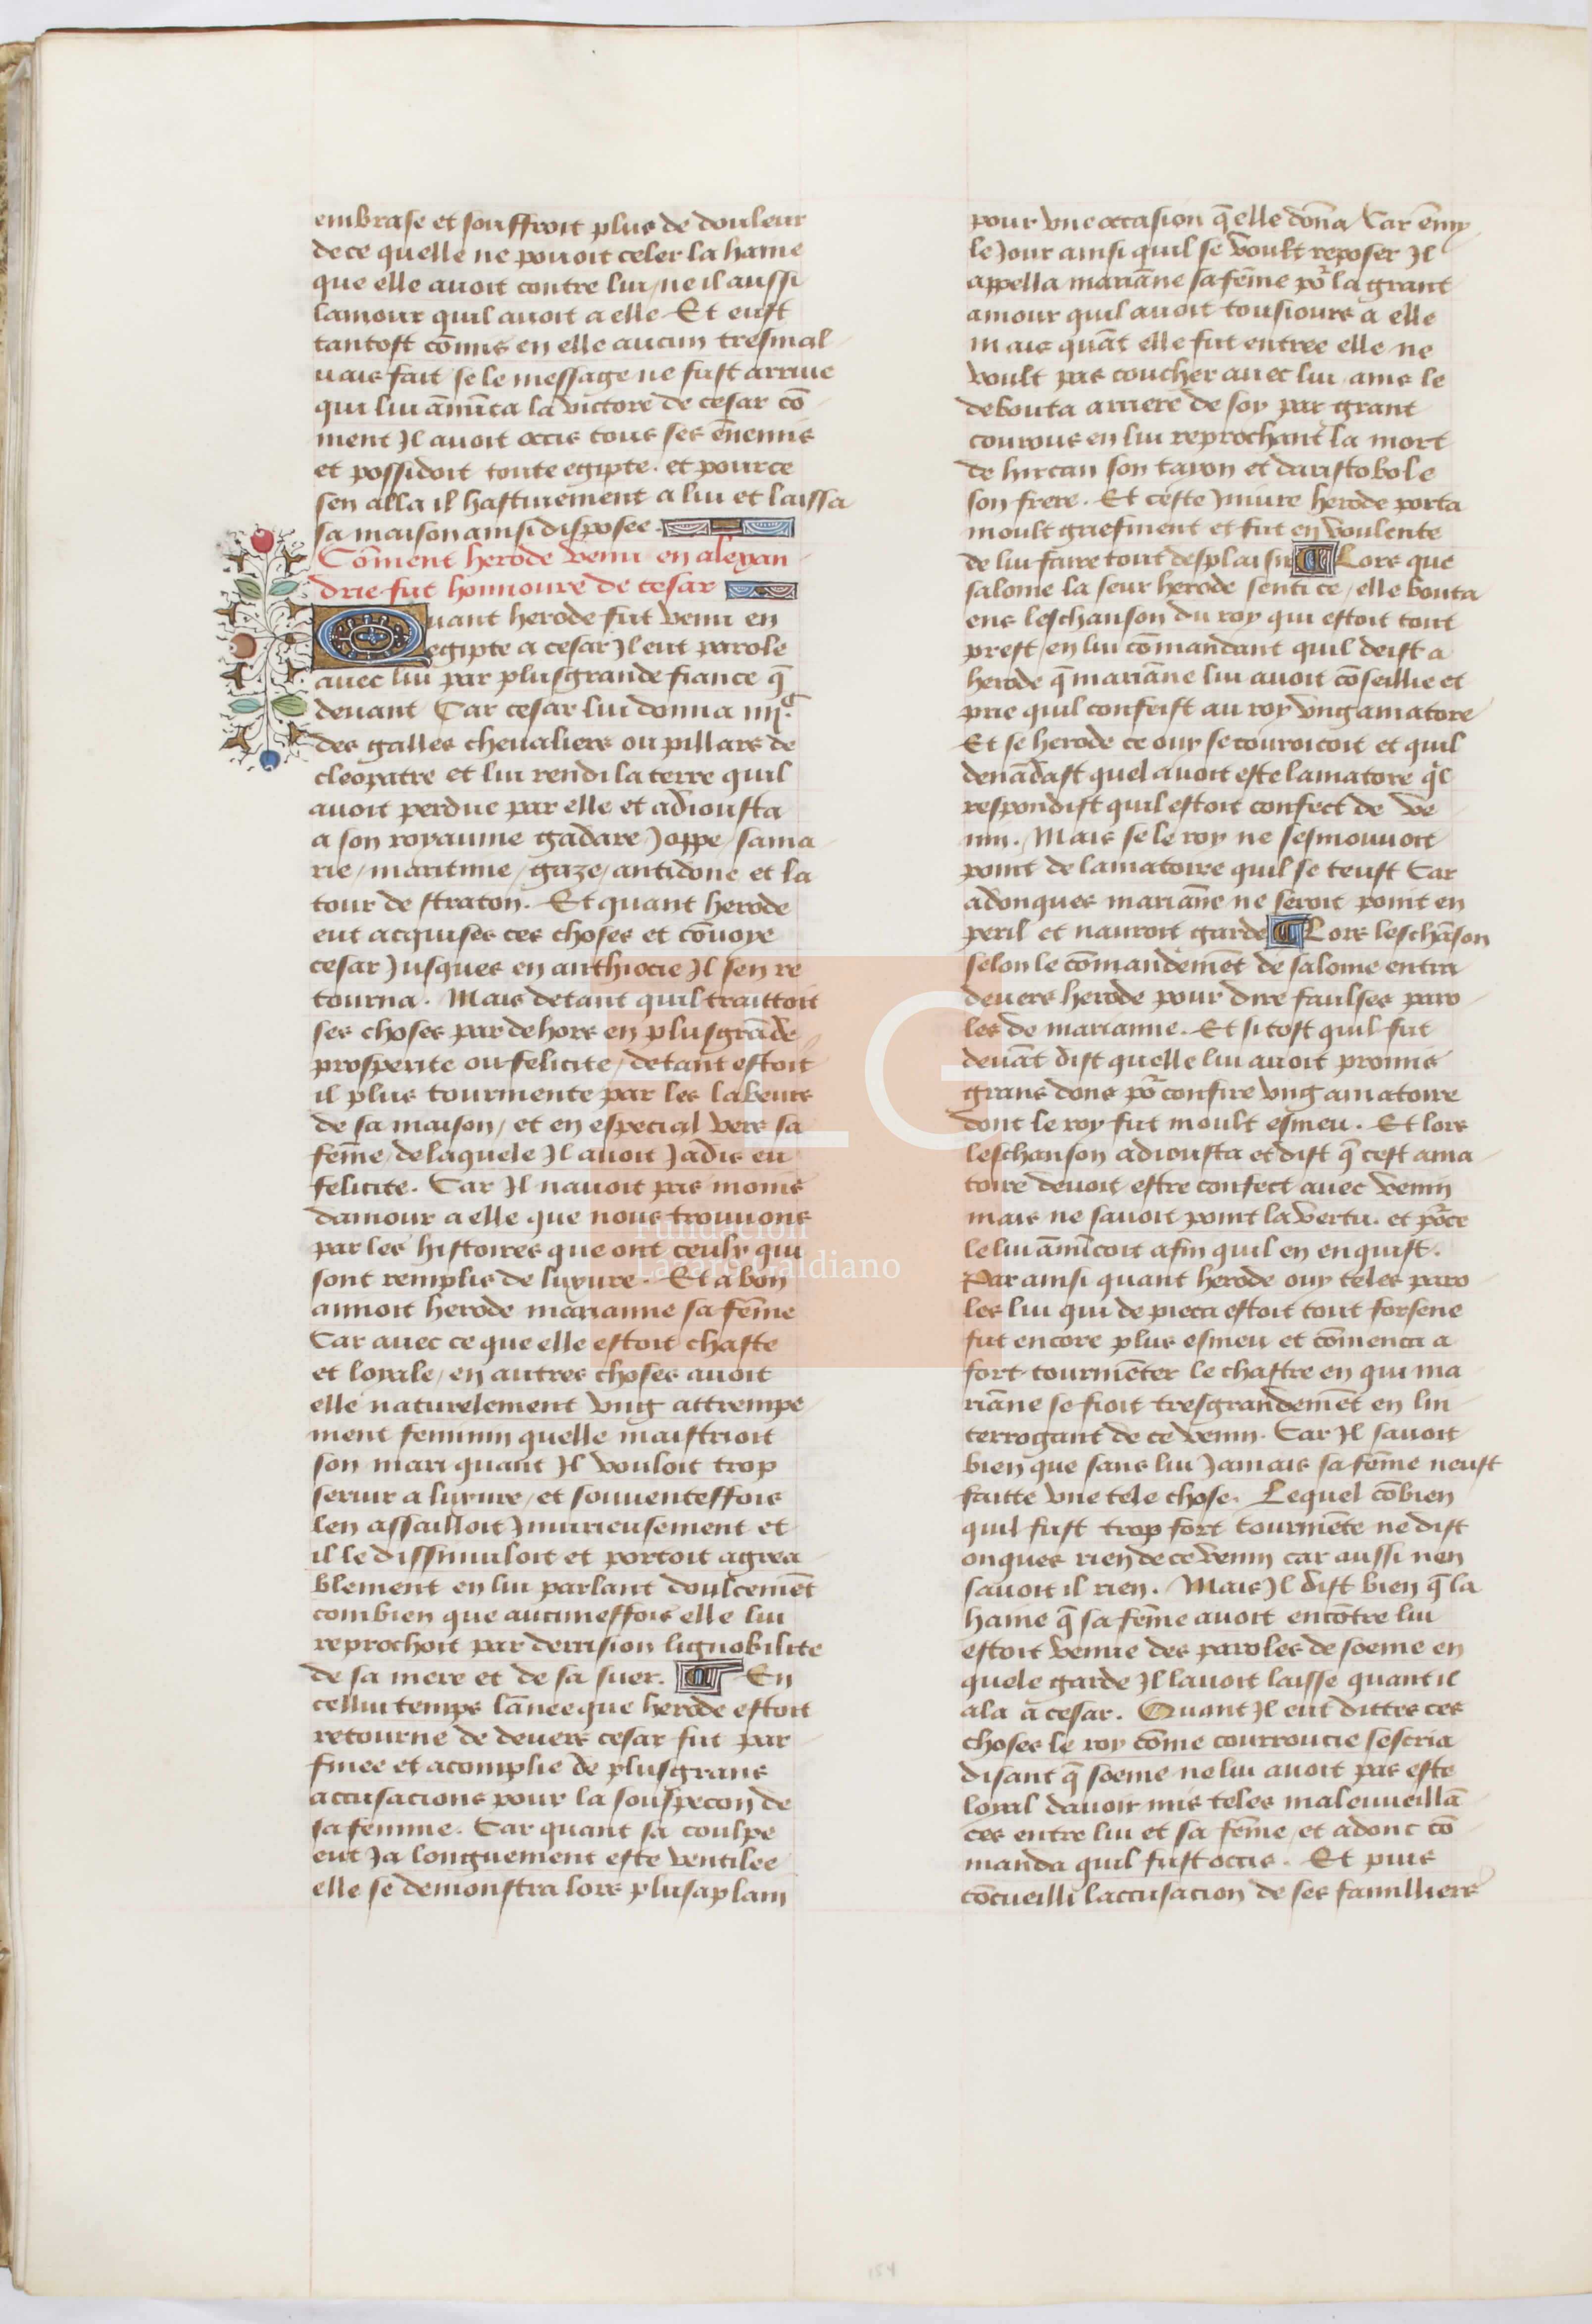 embrase et souffroit plus de douleur
de ce quelle ne pouoit celer la haine
que elle auoit contre lui / ne il aussi
lamour quil auoit a elle Et eust
tantost cōmis en elle aucun tresmal
uais fait se le message ne fust arriue
qui lui ānūca la victore de cesar cō
ment Il auoit occis tous ses ēnemis
et possidoit toute egipte. et pource
sen alla il hastiuement a lui et laissa
sa maison ainsi disposee.
Cōment herode venu en alexan
drie fut honnoure de cesar
Quant herode fut venu en
egipte a cesar Il eut parole
auec lui par plusgrande fiance q̄
deuant Car cesar lui donna iiij.c
des galles cheualiers ou pillars de
cleopatre et lui rendi la terre quil
auoit perdue par elle et adiousta
a son royaume gadare / Joppe / sama
rie / maritime / gaze / antidone et la
tour de straton. Et quant herode
eut acquises ces choses et cōuoye
cesar Jusques en anthiocie Il sen re
tourna. Mais detant quil traittoit
ses choses par dehors en plusgrāde
prosperite ou felicite / detant estoit
il plus tourmente par les labeurs
de sa maison / et en especial vers sa
fēme / de laquele Il auoit Jadis eu
felicite. Car Il nauoit pas moins
damour a elle que nous trouuons
par les histoires que ont ceulx qui
sont remplis de luxure. Et a bon
aimoit herode marianne sa fēme
Car auec ce que elle estoit chaste
et loyale / en autres choses auoit
elle naturelement vng attrempe
ment feminin quelle maistrioit
son mari quant Il vouloit trop
seruir a luxure / et souuenteffois
len assailloit Iniurieusement et
il le dissimuloit et portoit agrea
blement en lui parlant doulcemēt
combien que aucuneffois elle lui
reprochoit par derrision lignobilite
de sa mere et de sa suer. En
cellui temps lānee que herode estoit
retourne de deuers cesar fut par
finee et acomplie de plusgrans
accusacions pour la souspecon de
sa femme. Car quant sa coulpe
eut Ja longuement este ventilee
elle se demonstra lors plusaplain
pour vne occasion q̄ elle dōna / Car ēmy
le Jour ainsi quil se voult reposer Il
appella mariāne sa fēme po͛ la grant
amour quil auoit tousiours a elle
mais quāt elle fut entree elle ne
voult pas coucher auec lui ains le
debouta arriere de soy par grant
courous en lui reprochant la mort
de hircan son tayon et daristobole
son frere. Et ceste Iniure herode porta
moult griefment et fut en voulente
de lui faire tout desplaisir Lors que
salome la seur herode senti ce / elle bouta
ens leschanson du roy qui estoit tout
prest / en lui cōmandant quil deist a
herode q̄ mariāne lui auoit cōseillie et
prie quil confeist au roy vng amatore
Et se herode ce ouy se couroicoit et quil
demādast quel auoit este lamatore q̇l
respondist quil estoit confect de ve
nin. Mais se le roy ne sesmouuoit
point de lamatoire quil se teust Car
adonques mariāne ne seroit point en
peril et nauroit garde Lors leschāson
selon le cōmandemēt de salome entra
deuers herode pour dire faulses paro
les de marianne. Et si tost quil fut
deuāt dist quelle lui auoit promis
grans dons po͛ confire vng amatoire
dont le roy fut moult esmeu. Et lors
leschanson adiousta et dist q̄ cest ama
toire deuoit estre confect auec venin
mais ne sauoit point la vertu. et po͛ce
le lui ānūcoit afin quil en enquist.
Par ainsi quant herode ouy teles paro
les lui qui de pieca estoit tout forsene
fut encore plus esmeu et cōmenca a
fort tourmēter le chastre en qui ma
riāne se fioit tresgrandemēt en lin
terrogant de ce venin. Car Il sauoit
bien que sans lui Jamais sa fēme neust
faitte vne tele chose. Lequel cōbien
quil fust trop fort tourmēte ne dist
onques rien de ce venin car aussi nen
sauoit il rien. Mais Il dist bien q̄ la
haine q̄ sa fēme auoit encōtre lui
estoit venue des paroles de soeme en
quele garde Il lauoit laisse quant il
ala a cesar. Quant Il eut dittes ces
choses le roy cōme courroucie sescria
disant q̄ soeme ne lui auoit pas este
loyal dauoir mis teles maleuueillā
ces entre lui et sa fēme / et adonc cō
manda quil fust occis. Et puis
cōcueilli laccusacion de ses familliers
154
FLG
Fundación
Lázaro Galdiano